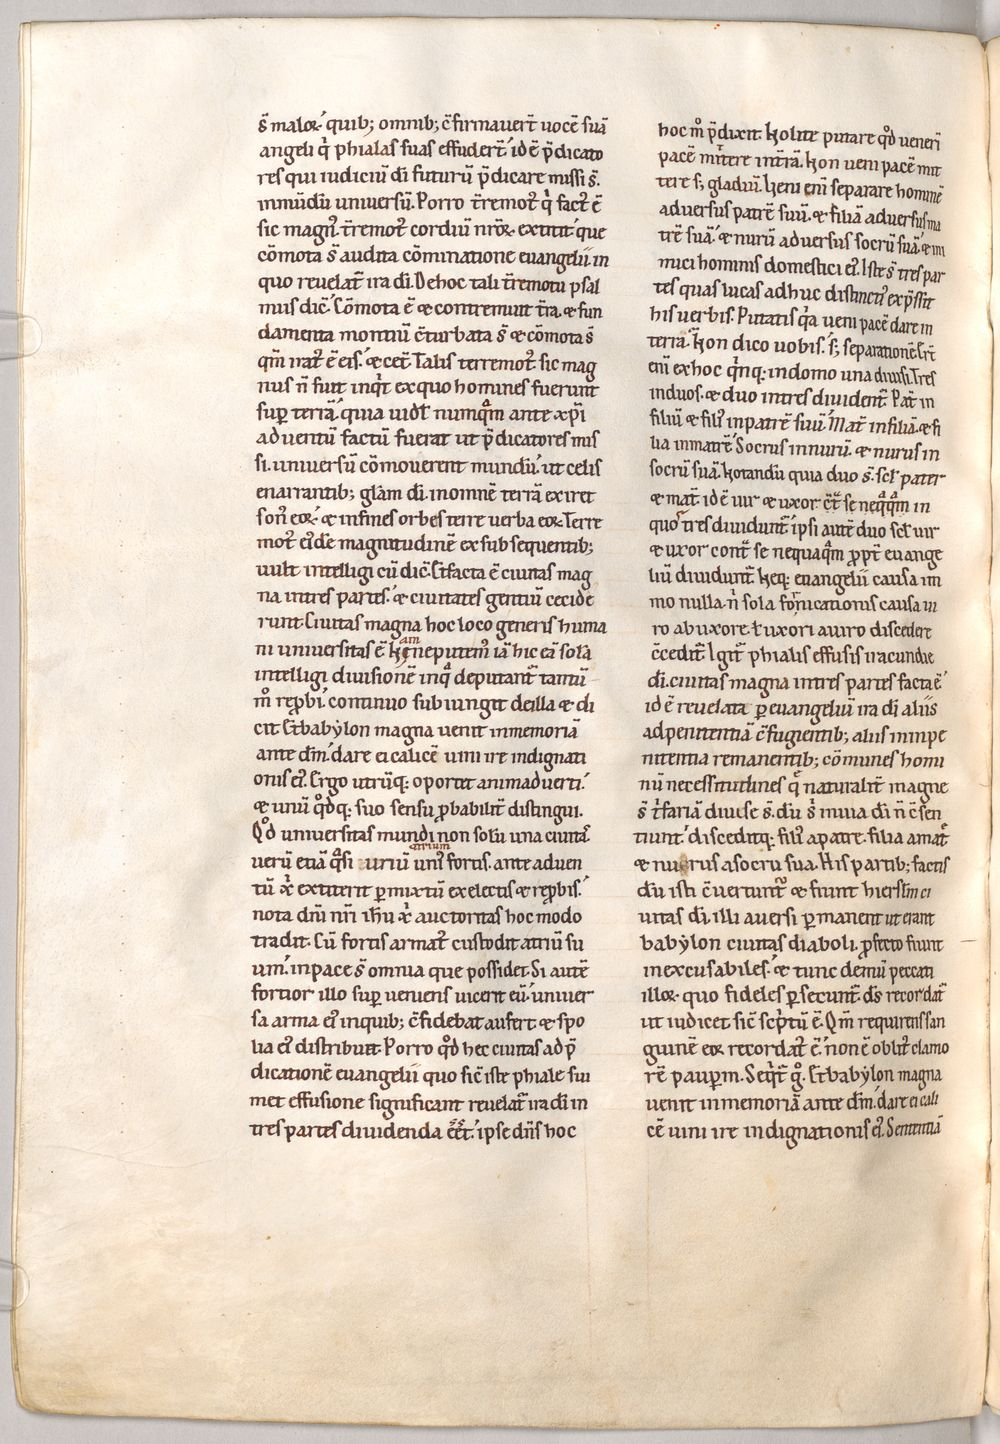 s̄ maloꝝ. quib; omnib; c̄firmauer̄t uocē suā
angeli qͥ phialas suas effuder̄t. id ē p̄dicato
res qui iudiciū di futurū p̄dicare missi s̄.
inmūdū uniuersū. Porro t̄remotꝰ qͥ factꝰ ē
sic magnꝰ. t̄remotꝰ cordiū nr̄oꝝ extitit. que
cōmota s̄ audita cōminatione euangelii in
quo reuelat̄ ira di. De hoc tali t̄remotu psal
mus dic̄. Cōmota ē ⁊ contremuit t̄ra. ⁊ fun
damenta montiū c̄turbata s̄ ⁊ cōmota s̄
qm̄ iratꝰ ē eis. ⁊ cet̄. Talis terremotꝰ sic mag
nus n̄ fuit inqͥt ex quo homines fuerunt
suꝑ terrā. quia uidꝉ numqͣm ante xp̄i
aduentū factū fuerat ut p̄dicatores mis
si. uniuersū cōmouerent mundū. ut celis
enarrantib; glām di. in omnē terrā exiret
sonꝰ eoꝝ. ⁊ infines orbes terre uerba eoꝝ. Terre
motꝰ eiꝰde magnitudinē ex subsequentib;
uult intelligi cū dic̄. Et facta ē ciuitas mag
na intres partes. ⁊ ciuitates gentiū cecide
runt. Ciuitas magna hoc loco generis huma
ni uniuersitas ē. Nam ne putemꝰ iā hic eā solā
intelligi diuisionē inqͣ deputant̄ tantū
mͦ rep̄bi. continuo subiungit de illa ⁊ di
cit. Et babylon magna uenit inmemoriā
ante dm̄. dare ei calicē uini ire indignati
onis eiꝰ. Ergo utrūq; oportet animaduerti.
⁊ unū qͦdq; suo sensu ꝓbabilit̄ distingui.
Qͦd uniuersitas mundi non solū una ciuitas
uerū etiā qͣsi atrium uriū unꝰ fortis. ante aduen
tū xͥ extiterit ꝑmixtū ex electis ⁊ rep̄bis.
nota dn̄i nr̄i ihū xͥ auctoritas hoc modo
tradit. Cū fortis armatꝰ custodit atriū su
um. inpace s̄ omnia que possidet. Si autē
fortior illo suꝑueniens uicerit eū. uniuer
sa arma eiꝰ inquib; c̄fidebat aufert ⁊ spo
lia eiꝰ distribuit. Porro qͦd hec ciuitas ad p̄
dicationē euangelii quo sic̄ iste phiale sui
met effusione significant reuelat̄ ira di in
tres partes diuidenda ēēt. ipse dn̄s hoc
hoc mͦ p̄dixit. Nolite putare qͦd uenerī
pacē mittere int̄rā. Non ueni pacē mit
tere s; gladiū. Ueni enī separare hominē
aduersus patrē suū. ⁊ filiā aduersus ma
trē suā. ⁊ nurū aduersus socrū suā. ⁊ ini
mici hominis domestici eiꝰ. Iste s̄ tres par
tes quas lucas adhuc distinctiꝰ exp̄ssit
his uerbis. Putatis qͥa ueni pacē dare in
terrā. Non dico uobis. s; separationē. Er̄t
enī ex hoc qͥnq; indomo una diuisi. Tres
induos. ⁊ duo intres diuident̄. Pat̄ in
filiū ⁊ filiꝰ inpatrē suū. Mat̄ infiliā. ⁊ fi
lia inmatrē. Socrus innurū. ⁊ nurus in
socrū suā. Notandū quia duo s̄. scꝉ pater
⁊ mat̄. id ē uir ⁊ uxor. c̄t̄ se neqͣqͣm in
quos tres diuidunt̄. ipsi autē duo scꝉ uir
⁊ uxor cont̄ se nequaqͣm ꝓpt̄ euange
liū diuidunt̄. Neq; euangelii causa im
mo nulla. nͥ sola fornicationis causa ui
ro ab uxore. ꝉ uxori a uiro discedere
c̄cedit̄. Igit̄ phialis effusis iracundie
di. ciuitas magna intres partes facta ē.
id ē reuelata ꝑ euangeliū ira di aliis
adpenitentiā c̄fugientib; aliis ininpe
nitentia remanentib; cōmunes homi
nū necessitudines qͤ naturalit̄ magne
s̄ tͥfariā diuise s̄. dū sͥmiua di n̄ c̄sen
tiunt. disceditq; filiꝰ apatre. filia amatͤ
⁊ nurus asocru sua. His partib; factis
dū isti c̄uertuntͣ ⁊ fiunt hierslm̄ ci
uitas di. illi auersi ꝑmanent ut erant
babylon ciuitas diaboli. ꝓfecto fiunt
inexcusabiles. ⁊ tunc demū peccati
illoꝝ quo fideles ꝑsecunt̄. ds̄ recordat̄
ut iudicet sic̄ scpͥtū ē. Qm̄ requirens san
guinē eoꝝ recordatꝰ ē. non ē oblitꝰ clamo
rē pauꝑm. Seqͥt̄ gͦ. Et babylon magna
uenit inmemoriā ante dm̄. dare ei cali
cē uini ire indignationis eiꝰ. Sententiā